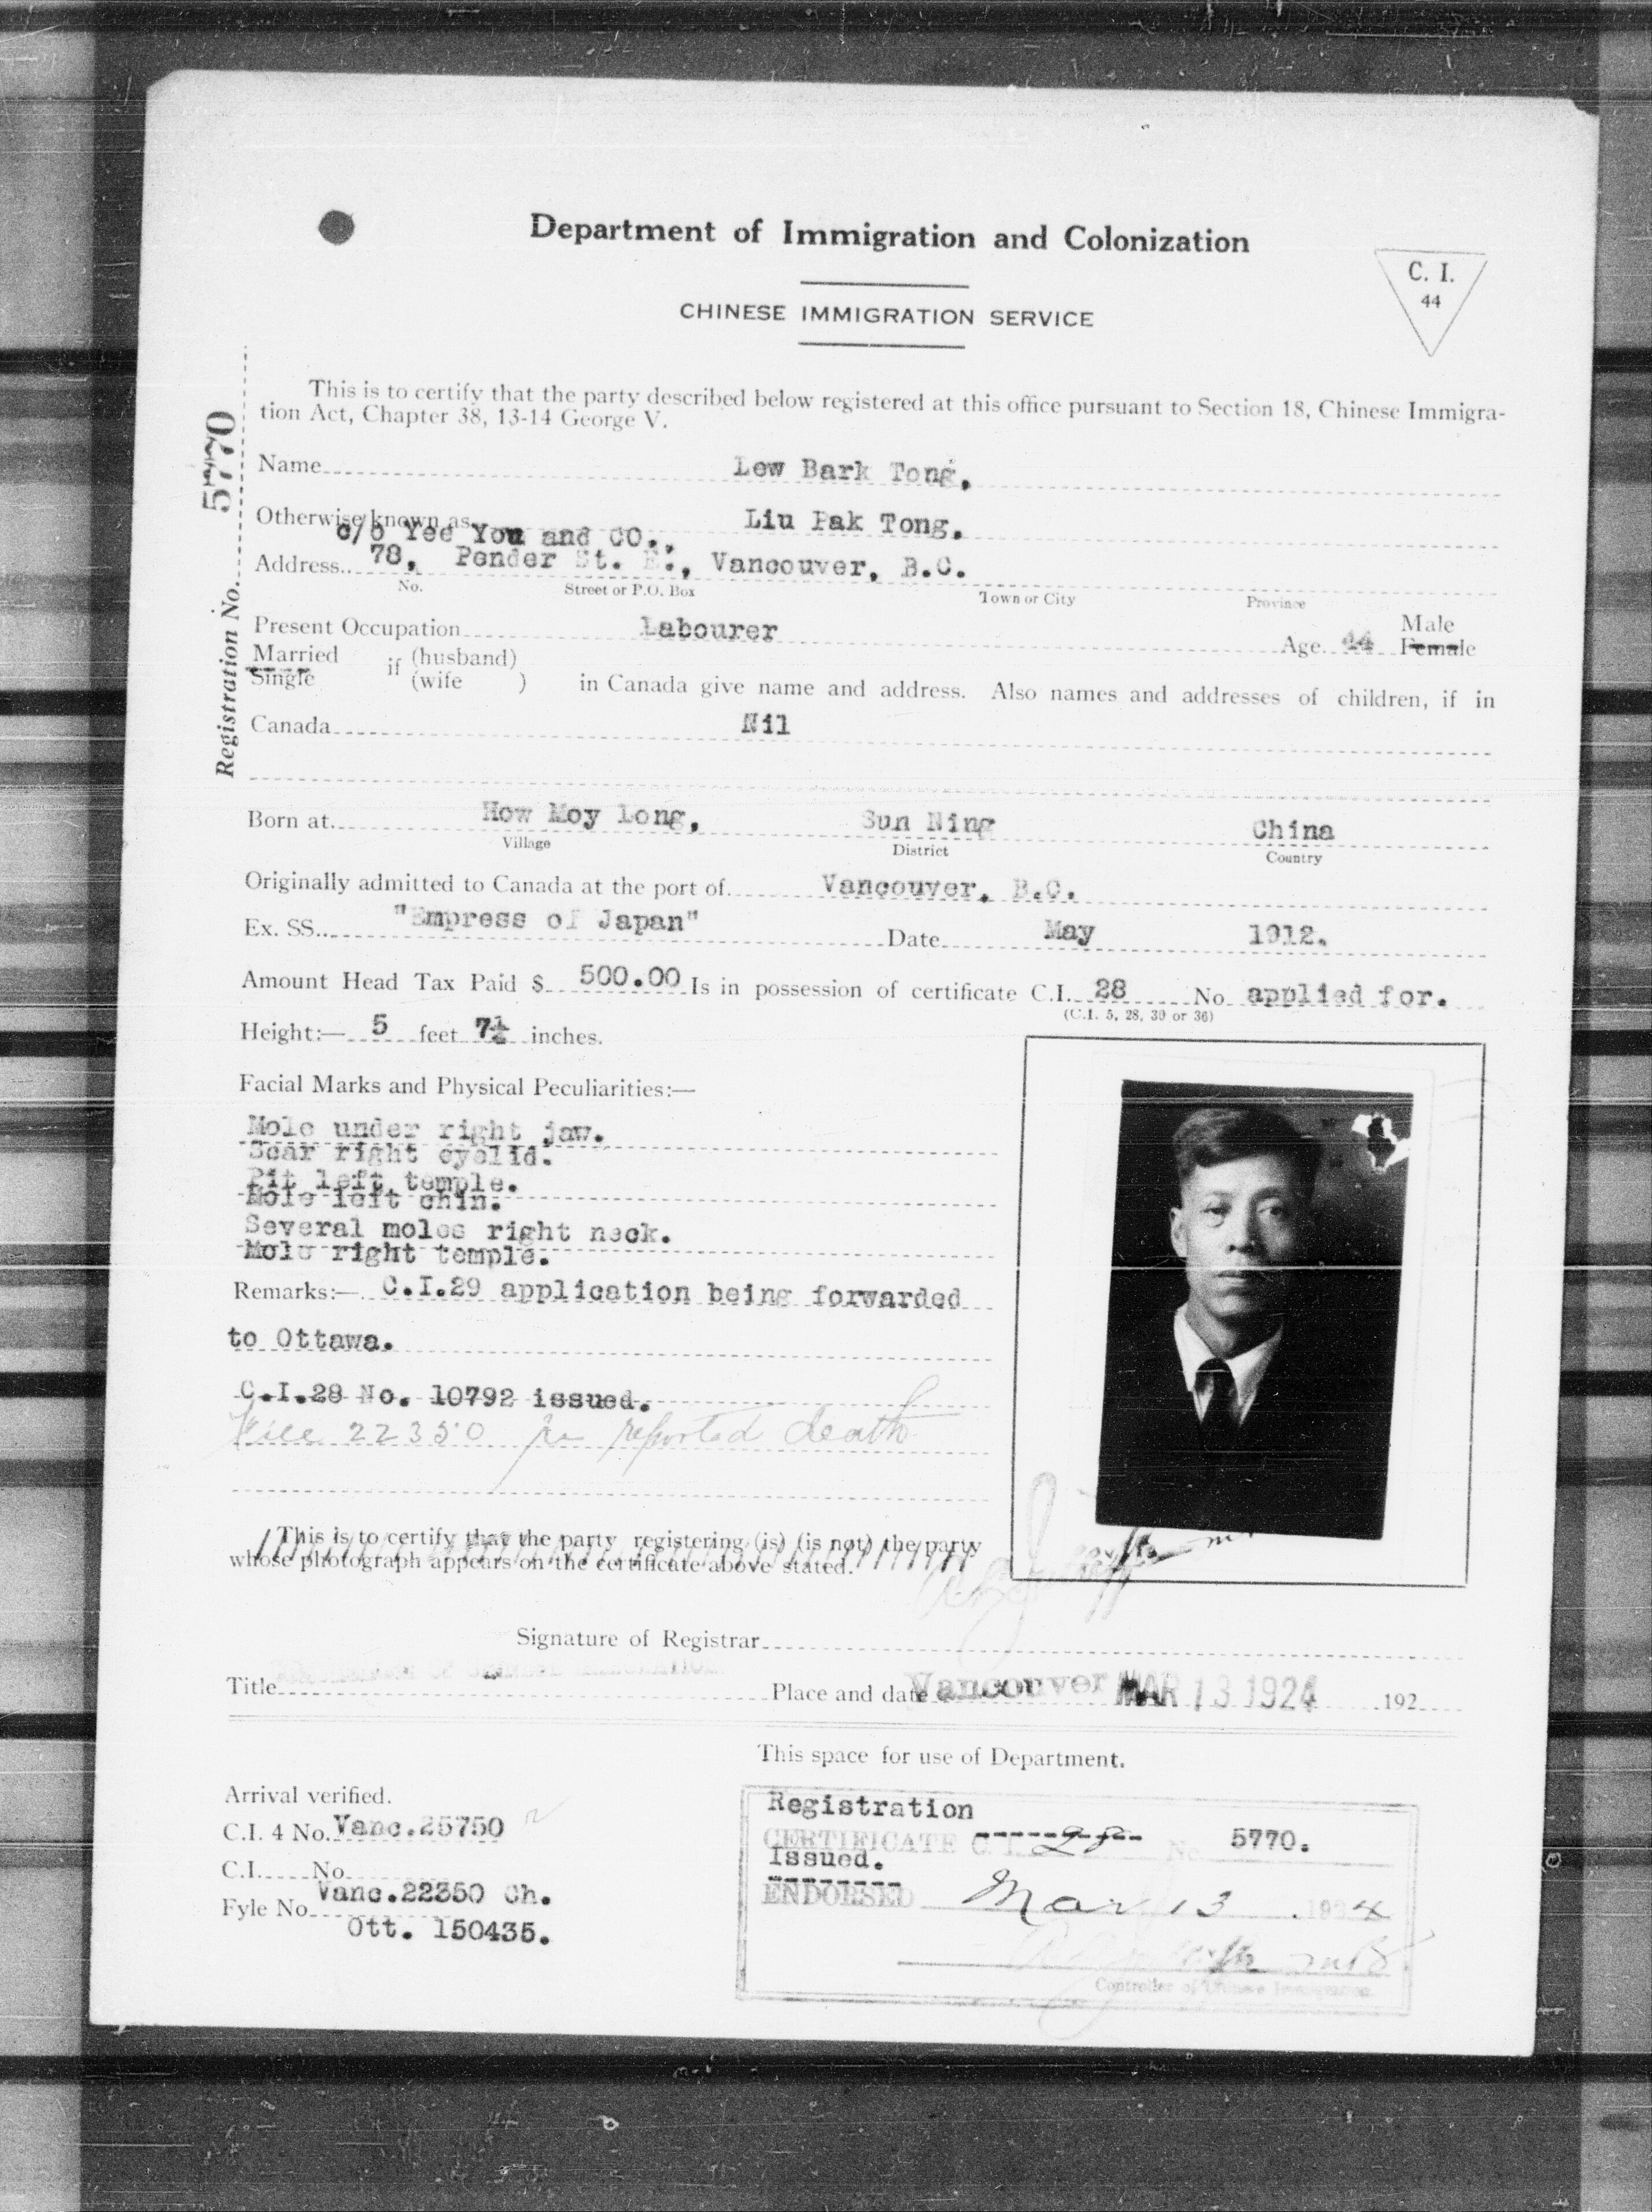 Department of Immigration and Colonization
C. I.
44
CHINESE IMMIGRATION SERVICE
Registration No. 5770
This is to certify that the party described below registered at this office pursuant to Section 18, Chinese Immigra-
tion Act, Chapter 38, 13-14 George V.
Name Lew Bark Tong,
Otherwise known as Liu Pak Tong.
c/o Yee You and CO.,
Address 78, Pender St. E., Vancouver, B.C.
No. Street or P.O. Box Town or City Province
Present Occupation Labourer Age 44 Male
Female
Married
Single if (husband)
(wife ) in Canada give name and address. Also names and addresses of children, if in
Canada Nil
Born at How Moy Long, Sun Ning China
Village District Country
Originally admitted to Canada at the port of Vancouver, B.C.
Ex. SS. "Empress of Japan" Date May 1912.
Amount Head Tax Paid $ 500.00 Is in possession of certificate C.I. 28 No applied for.
(C.I. 5, 28, 30 or 36)
Height:— 5 feet 7½ inches.
Facial Marks and Physical Peculiarities:—
Mole under right jaw.
Scar right eyelid.
Pit left temple.
Mole left chin.
Several moles right neck.
Mole right temple.
Remarks:— C.I.29 application being forwarded
to Ottawa.
C.I.28 No. 10792 issued.
File 22350 re reported death
This is to certify that the party registering (is) (is not) the party
whose photograph appears on the certificate above stated.
Signature of Registrar
Title Place and date Vancouver MAR 13 1924 192
This space for use of Department.
Arrival verified.
C.I. 4 No. Vanc.25750
C.I. No
Fyle No Vanc.22350 Ch.
Ott. 150435.
Registration
CERTIFICATE C.I. 28 No 5770.
Issued.
ENDORSED Mar 13 1924
Controller of Chinese Immigration